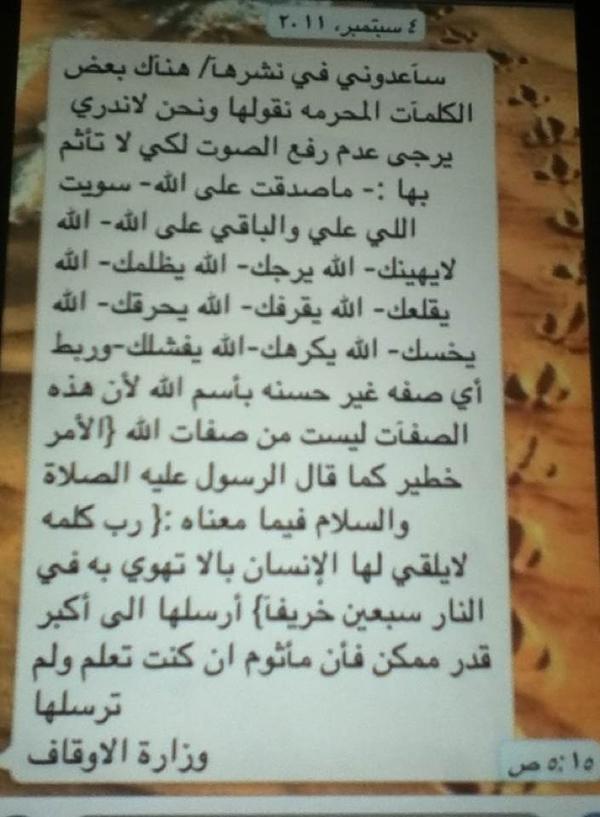 ٤ سبتمبر، ٢٠١١
ساَعدوني في نشرهاَ/ هناَك بعض
الكلماَت المحرمه نقولها ونحن لاندري
يرجى عدم رفع الصوت لكي لا تأثم
بها :- ماصدقت على الله- سويت
اللي علي والباقي على الله- الله
لايهينك- الله يرجك- الله يظلمك- الله
يقلعك- الله يقرفك- الله يحرقك- الله
يخسك- الله يكرهك-الله يفشلك-وربط
أي صفه غير حسنه بأسم الله لأن هذه
الصفاَت ليست من صفات الله {الأمر
خطير كما قال الرسول عليه الصلاة
والسلام فيما معناه :{ رب كلمه
لايلقي لها الإنسان بالا تهوي به في
النار سبعين خريفاَ} أرسلها الى أكبر
قدر ممكن فأن مأثوم ان كنت تعلم ولم
ترسلها
وزارة الاوقاف
٥:١٥ ص